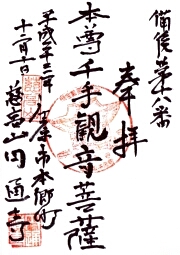 備後第十八番
奉拝
本尊千手観音菩薩
平成十三年
十二月十日
庄原市本郷町
慈高山円通寺